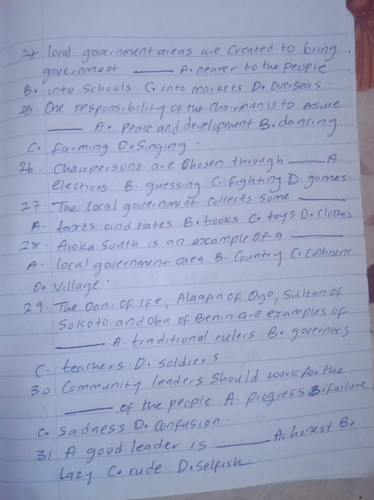 24 local government areas are created to bring
government ____ A. nearer to the people
B. into Schools C. into markets D. Overseas.
25. One responsibility of the Chairman is to ensure
____ A. peace and development B. dancing
C. farming D. Singing.
26. Chairpersons are Chosen through ____ A
elections B. guessing C. fighting D. games.
27. The local government Collects Some ____
A. taxes and rates B. books C. toys D. Clothes
28. Awka South is an example of a ____
A. local government area B. Country C. Continent
D. Village.
29. The Ooni of Ife, Alaafin of Oyo, Sultan of
Sokoto and Oba of Benin are examples of
____ A. traditional rulers B. governors
C. teachers D. Soldiers.
30 Community leaders Should work for the
____ of the people A. progress B. failure
C. Sadness D. Confusion.
31. A good leader is ____ A. honest B.
Lazy C. rude D. Selfish